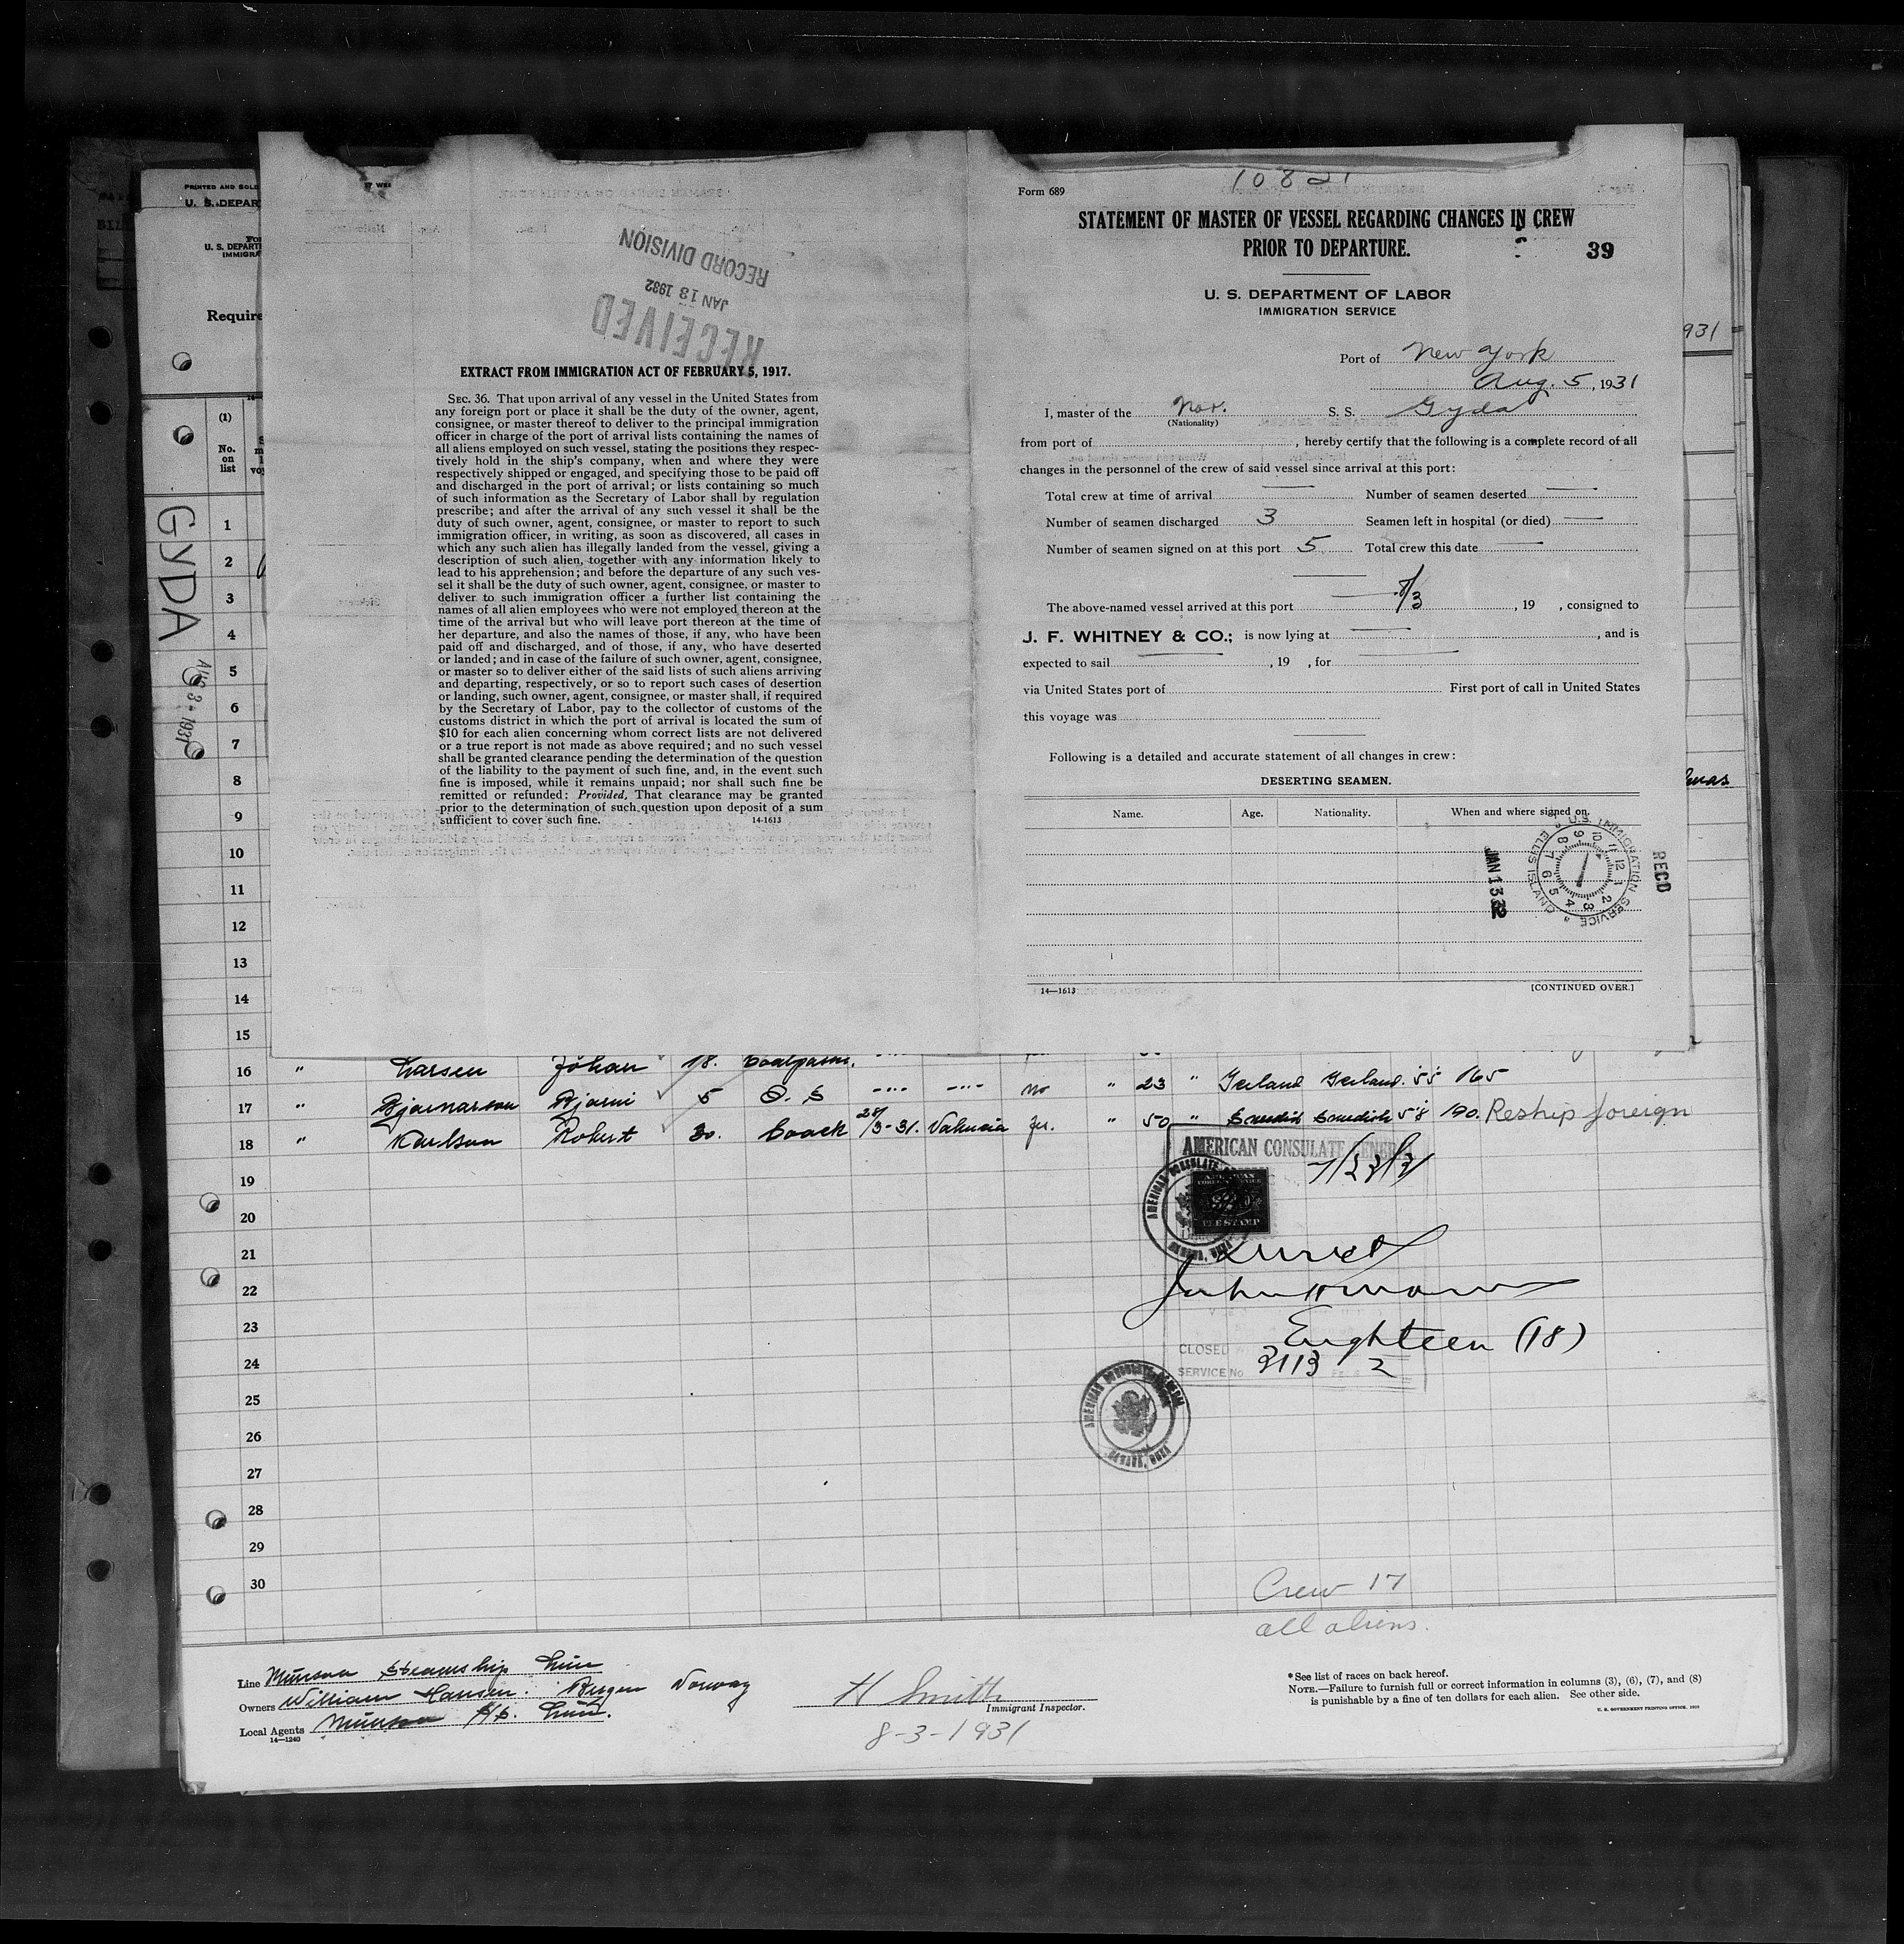 PRINTED AND SOLD
U. S. DEPAR
U. S. DEPART
IMMIGRA
Require
(1)
No.
on
list
GYDA
AUG 3 - 1931
RECEIVED
JAN 13 1932
RECORD DIVISION
EXTRACT FROM IMMIGRATION ACT OF FEBRUARY 5, 1917.
SEC. 36. That upon arrival of any vessel in the United States from
any foreign port or place it shall be the duty of the owner, agent,
consignee, or master thereof to deliver to the principal immigration
officer in charge of the port of arrival lists containing the names of
all aliens employed on such vessel, stating the positions they respec-
tively hold in the ship's company, when and where they were
respectively shipped or engaged, and specifying those to be paid off
and discharged in the port of arrival; or lists containing so much
of such information as the Secretary of Labor shall by regulation
prescribe; and after the arrival of any such vessel it shall be the
duty of such owner, agent, consignee, or master to report to such
immigration officer, in writing, as soon as discovered, all cases in
which any such alien has illegally landed from the vessel, giving a
description of such alien, together with any information likely to
lead to his apprehension; and before the departure of any such ves-
sel it shall be the duty of such owner, agent, consignee, or master to
deliver to such immigration officer a further list containing the
names of all alien employees who were not employed thereon at the
time of the arrival but who will leave port thereon at the time of
her departure, and also the names of those, if any, who have been
paid off and discharged, and of those, if any, who have deserted
or landed; and in case of the failure of such owner, agent, consignee,
or master so to deliver either of the said lists of such aliens arriving
and departing, respectively, or so to report such cases of desertion
or landing, such owner, agent, consignee, or master shall, if required
by the Secretary of Labor, pay to the collector of customs of the
customs district in which the port of arrival is located the sum of
$10 for each alien concerning whom correct lists are not delivered
or a true report is not made as above required; and no such vessel
shall be granted clearance pending the determination of the question
of the liability to the payment of such fine, and, in the event such
fine is imposed, while it remains unpaid; nor shall such fine be
remitted or refunded: Provided, That clearance may be granted
prior to the determination of such question upon deposit of a sum
sufficient to cover such fine. 14-1613
10821
Form 689
STATEMENT OF MASTER OF VESSEL REGARDING CHANGES IN CREW
PRIOR TO DEPARTURE. 39
U. S. DEPARTMENT OF LABOR
IMMIGRATION SERVICE
Port of New York
Aug. 5, 1931
I, master of the Nor. S. S. Gyda
(Nationality)
from port of , hereby certify that the following is a complete record of all
changes in the personnel of the crew of said vessel since arrival at this port:
Total crew at time of arrival — Number of seamen deserted —
Number of seamen discharged 3 Seamen left in hospital (or died) —
Number of seamen signed on at this port 5 Total crew this date —
The above-named vessel arrived at this port 8/3 , 19 , consigned to
J. F. WHITNEY & CO.; is now lying at — , and is
expected to sail , 19 , for
via United States port of First port of call in United States
this voyage was
Following is a detailed and accurate statement of all changes in crew:
DESERTING SEAMEN.
Name. Age. Nationality. When and where signed on.
RECD
U.S. IMMIGRATION SERVICE ELLIS ISLAND
JAN 13 32
14—1613 [CONTINUED OVER.]
931
1
2
3
4
5
6
7
8
9
10
11
12
13
14
15
16 " Larsen Johan 18. Coalpasser.
17 " Bjarnarson Bjarni 5 O. S -"- -"- no " 23 " Iceland Iceland. 5'5 165
18 " Karlson Robert 30. Coock 28/3-31. Valencia " 50 " Swedish Swedish 5'8 190. Reship foreign
19
20
21
22
23
24
25
26
27
28
29
30
AMERICAN CONSULATE GENERAL
FEE STAMP
Eighteen (18)
CLOSED
SERVICE No. 3113 2
Crew 17
all aliens.
Line Munson Steamship Line
Owners William Hansen. Bergen Norway
Local Agents Munson S/S. Line.
14—1240
H Smith
Immigrant Inspector.
8-3-1931
*See list of races on back hereof.
NOTE.—Failure to furnish full or correct information in columns (3), (6), (7), and (8)
is punishable by a fine of ten dollars for each alien. See other side.
U. S. GOVERNMENT PRINTING OFFICE. 1930